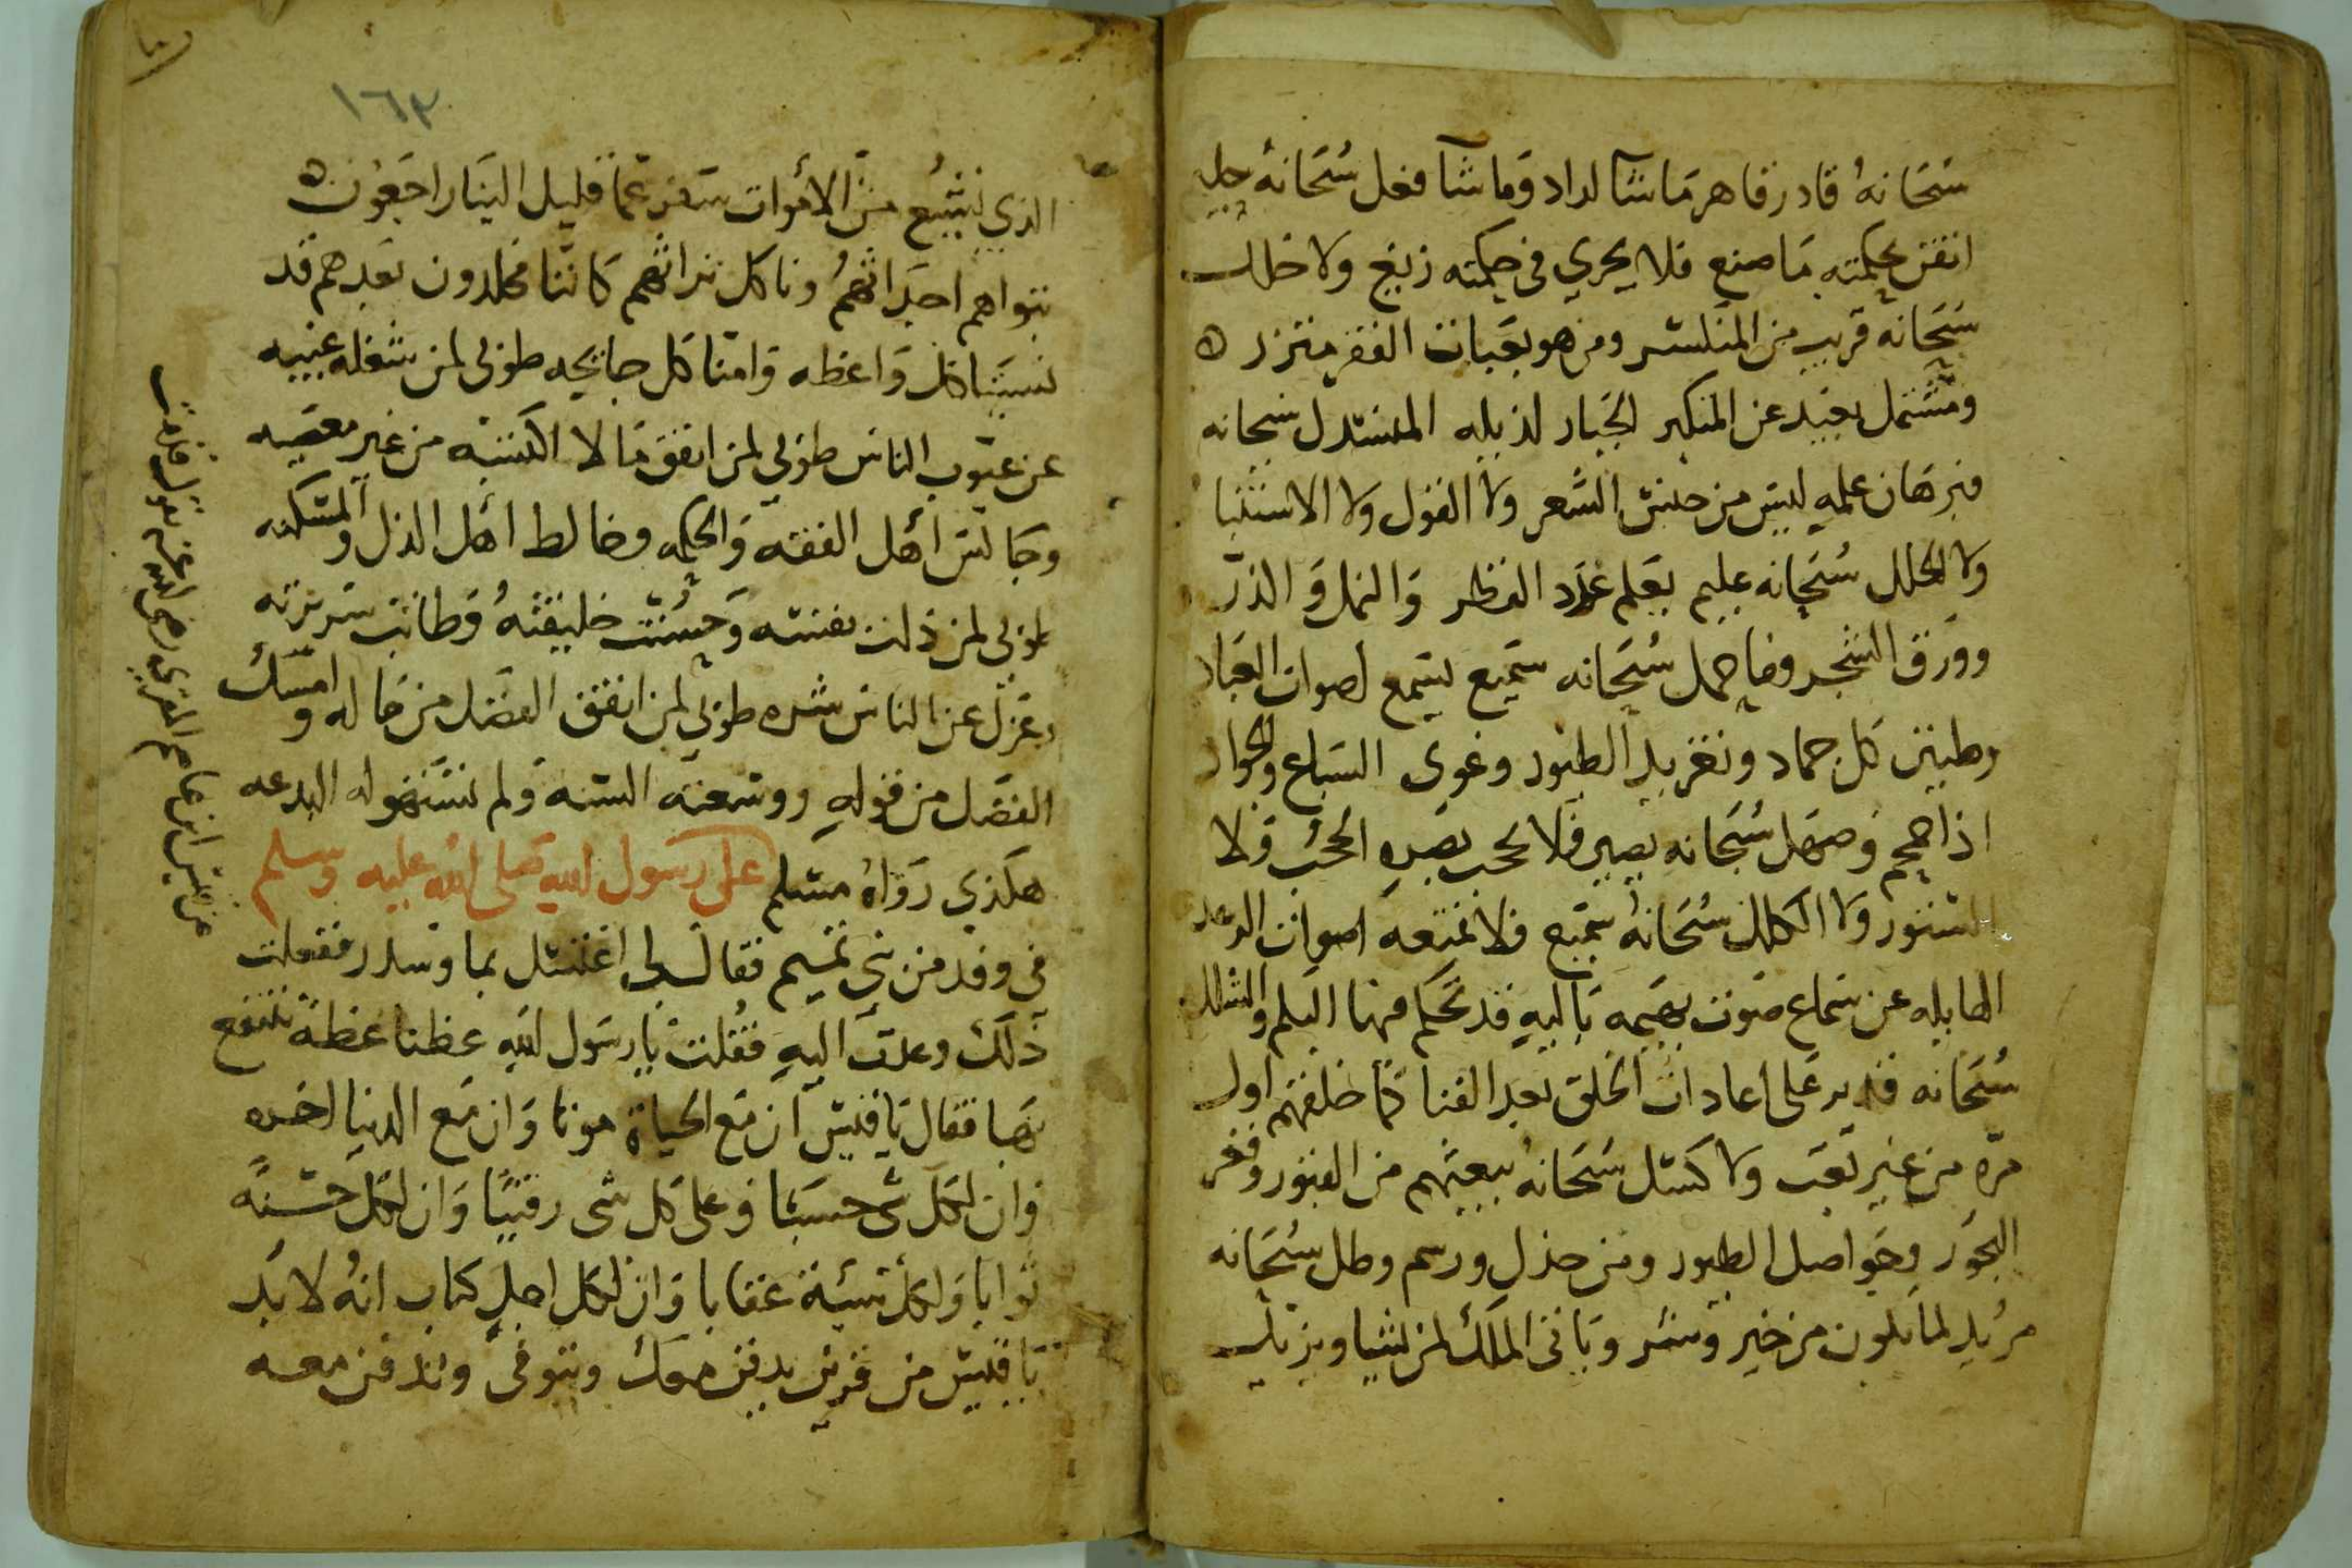 سبحانه قادر قاهر ما شآ اراد وما شآ فعل سبحانه
اتقن بحكمته ما صنع فلا يجري في حكمته زيغ ولا خلل
سبحانه قريب من ومن هو بعبات الفقر متزر ه
ومشتمل بعيد عن المتكبر الجبار لذيله المنسدل سبحانه
فبرهان علمه ليس من جنس الشعر ولا القول ولا
ولا سبحانه عليم يعلم عدد القطر والنمل والذر
وورق الشجر وما حمل سبحانه سميع يسمع اصوات العباد
وطنين كل جماد وتغريد الطيور وعوى السباع والجواد
اذا حمحم وصهل سبحانه بصير فلا يحجب بصره الحجب ولا
الستور ولا الكلل سبحانه سميع فلا تمنعه اصوات الرعد
الهايله عن سماع صوت بهيمه باليه قد تحكم فيها البلم والشلل
سبحانه قدير على اعادات الخلق بعد الفنا كما خلقهم اول
مره من غير تعب ولا كسل سبحانه يبعثهم من القبور وقعر
البحور وحواصل الطيور ومن ورسم وطلل سبحانه
مريد لما يكون من خير وشر وياتى الملك لمن يشا
١٦٣
الذي نشيع من الاموات سفر عما قليل الينا راجعون ه
نبواهم اجداثهم وناكل تراثهم كاننا مخلدون بعدهم قد
نسينا كل واعظه وامنا كل جايحه طوبى لمن شغله عيبه
عن عيوب الناس طوبي لمن انفق مالا اكتسبه من غير معصيه
وجالس اهل الفقه والحكمه وخالط اهل الذل والمسكنه
طوبي لمن ذلت نفسه وحسنت خليقته وطابت سريرته
وعزل عن الناس شره طوبي لمن انفق الفضل من ماله وامسك
الفضل من قوله ووسعته السنه ولم تستهوله البدعه
هكذي رواه مسلم على رسول الله صلى الله عليه وسلم
في وفد من بني تميم فقال لي اغتسل بما وسدر ففعلت
ذلك وعدت اليه فقلت يا رسول الله عظنا عظة ننتفع
بها فقال يا قيس ان مع الحياة موتا وان مع الدنيا اخره
وان لكل شي حسيبا وعلى كل شى رقيبا وان لكل حسنة
ثوابا ولكل سيئة عقابا وان لكل اجل كتاب انه لا بد
يا قيس من قرين يدفن معك وتدفن معه
عن قيس ابن عاصم المنقري رضي الله عنه يقول قدمت